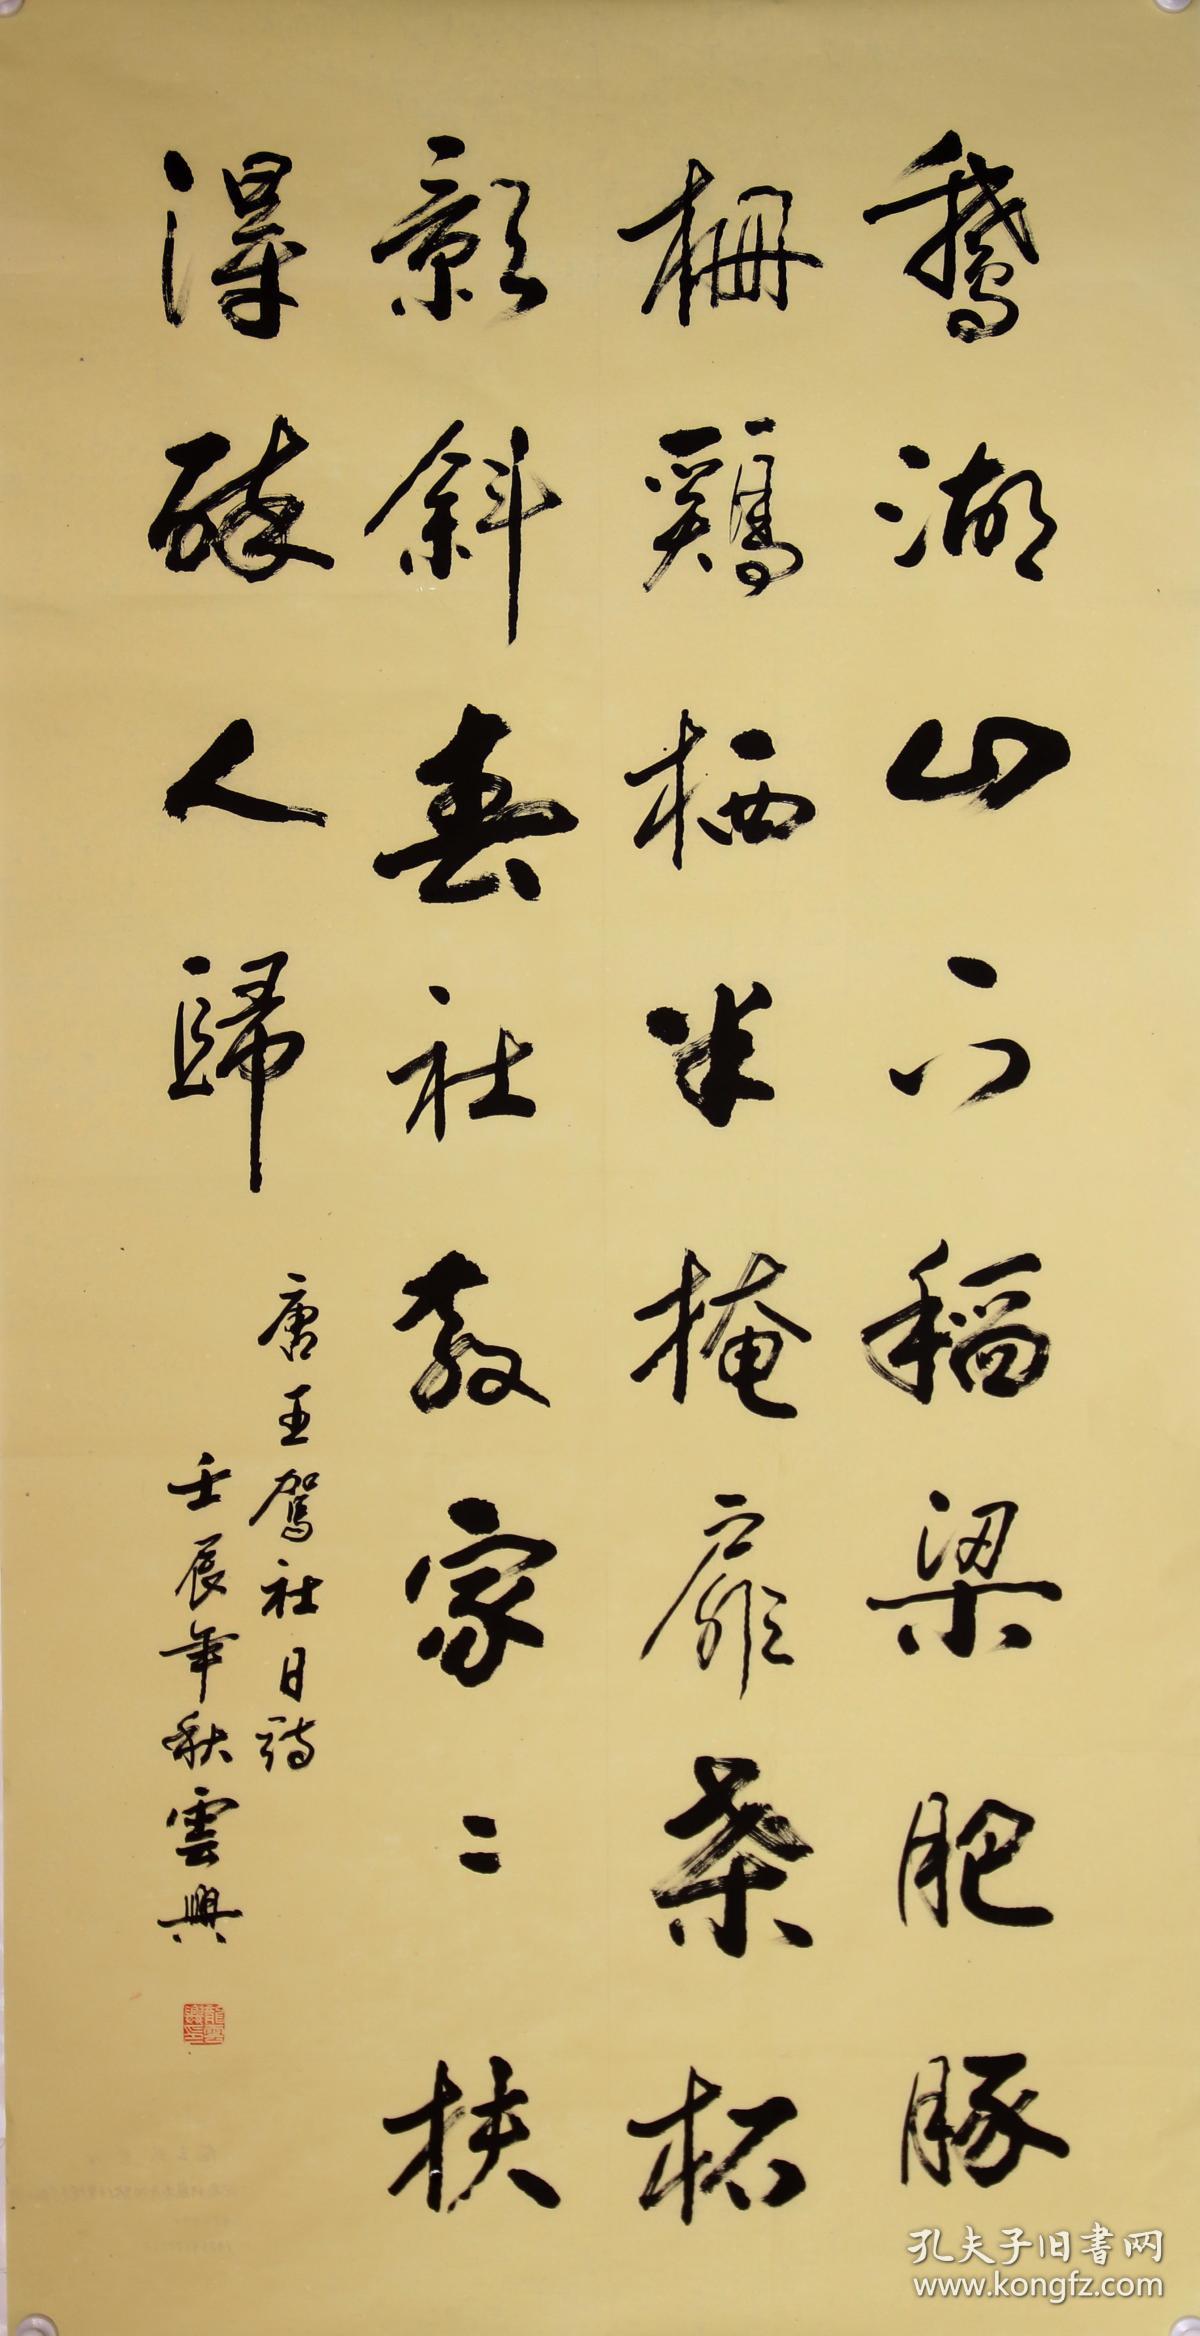 鵝湖山下稻梁肥豚
柵鷄栖半掩扉桑柘
影斜春社散家々扶
得醉人歸
唐王駕社日詩
壬辰年秋雲興
孔夫子旧書网
www.kongfz.com